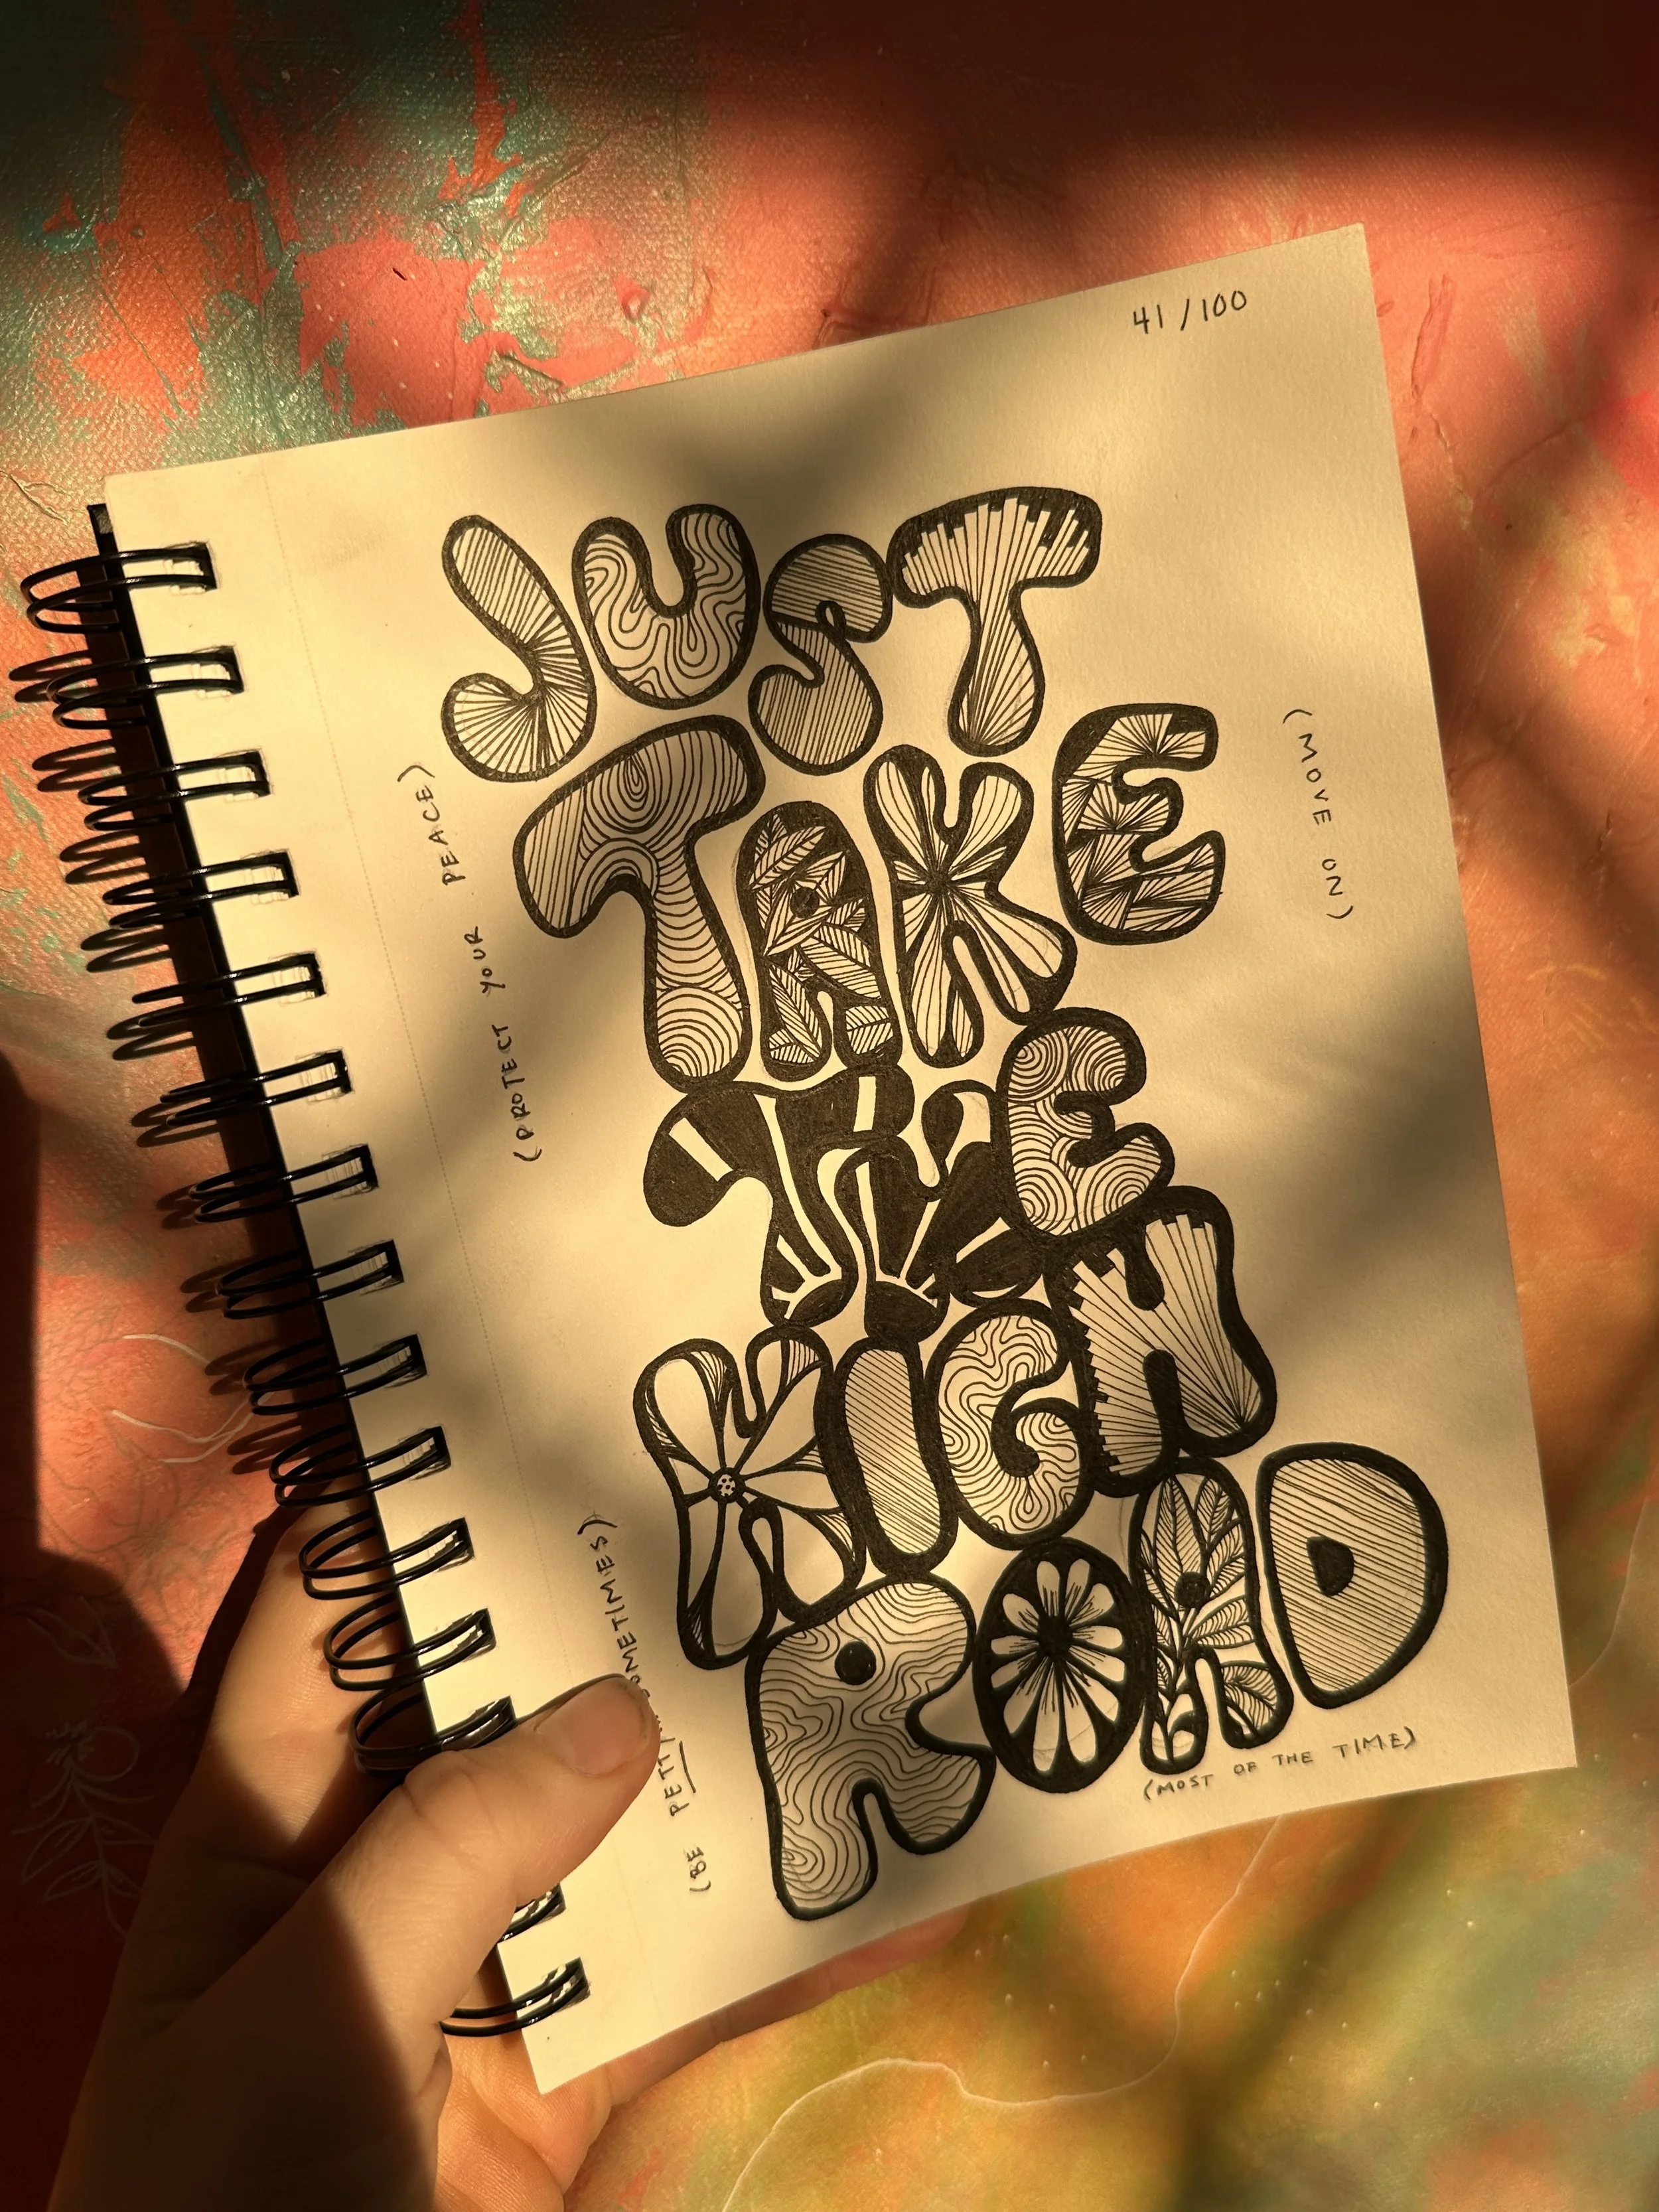 41/100
JUST
TAKE
THE
HIGH
ROAD
(MOVE ON)
(PROTECT YOUR PEACE)
(BE PETTY SOMETIMES)
(MOST OF THE TIME)